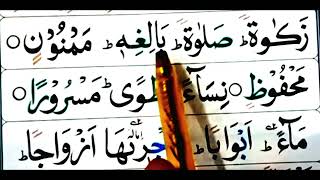 زَكٰوةً ؕ صَلٰوةً ؕ بَالِغِهٖ ؕ مَمْنُوْنٍ ○
مَحْفُوْظٍ ○ نِسَآءً ؕ طُوًى ؕ مَسْرُوْرًا ○
مَآءً ؕ اَبْوَابًا ؕ اَزْوَاجًا ؕ